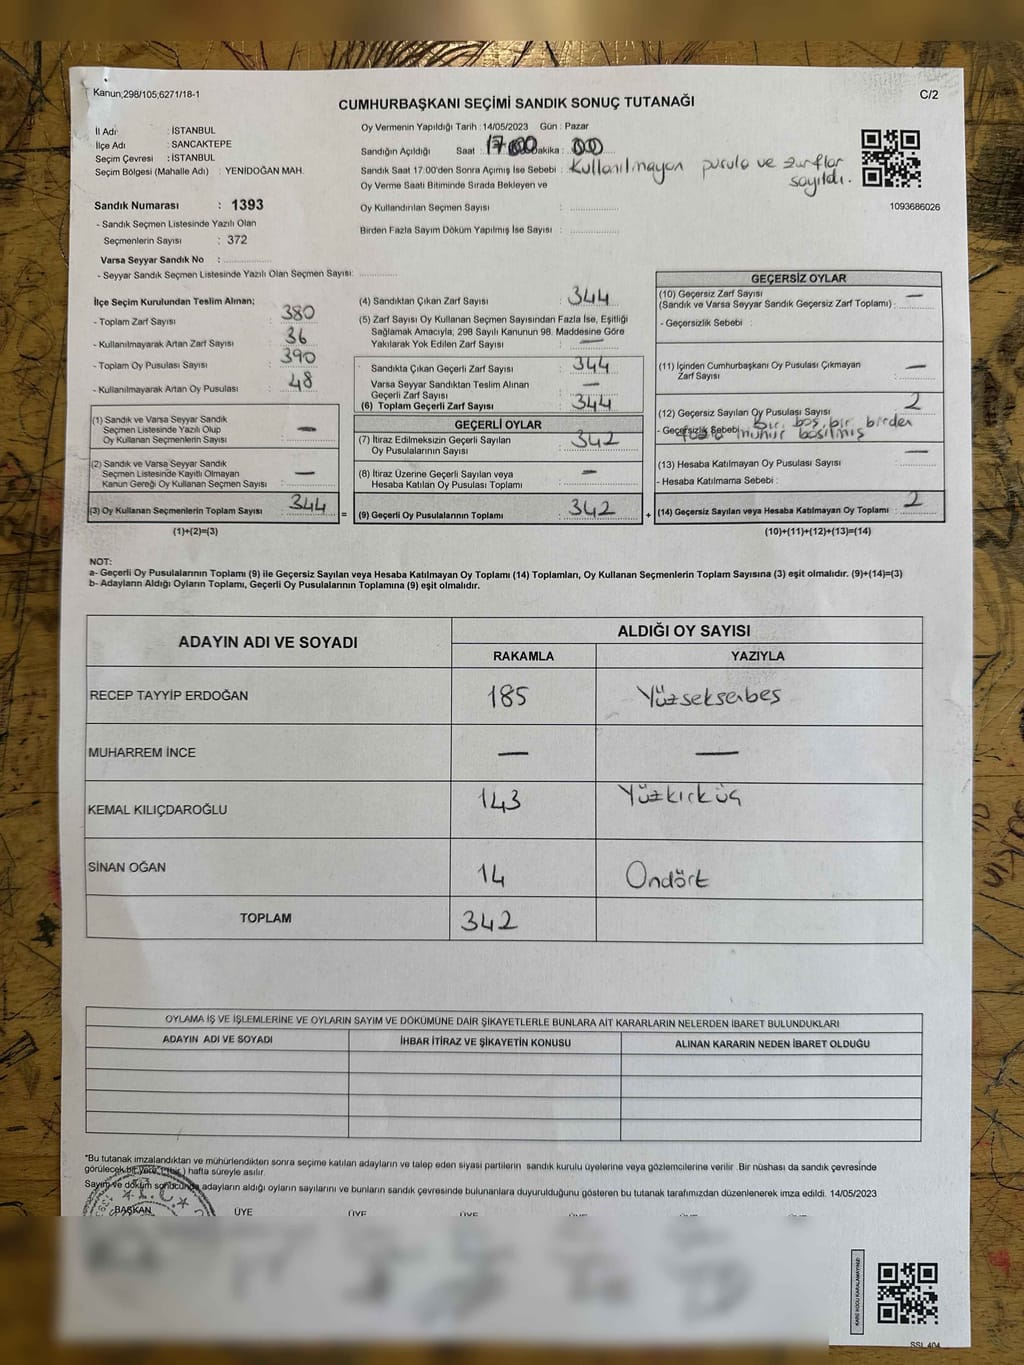 Kanun;298/105;6271/18-1
C/2
CUMHURBAŞKANI SEÇİMİ SANDIK SONUÇ TUTANAĞI
İl Adı : İSTANBUL
İlçe Adı : SANCAKTEPE
Seçim Çevresi : İSTANBUL
Seçim Bölgesi (Mahalle Adı) : YENİDOĞAN MAH.
Oy Vermenin Yapıldığı Tarih : 14/05/2023 Gün : Pazar
Sandığın Açıldığı Saat : 17 Dakika : 00
Sandık Saat 17:00'den Sonra Açımış İse Sebebi : Kullanılmayan pusula ve zarflar
sayıldı.
Oy Verme Saati Bitiminde Sırada Bekleyen ve
Oy Kullandırılan Seçmen Sayısı :
Birden Fazla Sayım Döküm Yapılmış İse Sayısı :
1093686026
Sandık Numarası : 1393
- Sandık Seçmen Listesinde Yazılı Olan
Seçmenlerin Sayısı : 372
Varsa Seyyar Sandık No :
- Seyyar Sandık Seçmen Listesinde Yazılı Olan Seçmen Sayısı:
İlçe Seçim Kurulundan Teslim Alınan;
- Toplam Zarf Sayısı : 380
- Kullanılmayarak Artan Zarf Sayısı : 36
- Toplam Oy Pusulası Sayısı : 390
- Kullanılmayarak Artan Oy Pusulası : 48
(1) Sandık ve Varsa Seyyar Sandık
Seçmen Listesinde Yazılı Olup
Oy Kullanan Seçmenlerin Sayısı : —
(2) Sandık ve Varsa Seyyar Sandık
Seçmen Listesinde Kayıtlı Olmayan
Kanun Gereği Oy Kullanan Seçmen Sayısı : —
(3) Oy Kullanan Seçmenlerin Toplam Sayısı : 344
(1)+(2)=(3)
=
(4) Sandıktan Çıkan Zarf Sayısı : 344
(5) Zarf Sayısı Oy Kullanan Seçmen Sayısından Fazla İse, Eşitliği
Sağlamak Amacıyla; 298 Sayılı Kanunun 98. Maddesine Göre
Yakılarak Yok Edilen Zarf Sayısı : —
Sandıkta Çıkan Geçerli Zarf Sayısı : 344
Varsa Seyyar Sandıktan Teslim Alınan
Geçerli Zarf Sayısı : —
(6) Toplam Geçerli Zarf Sayısı : 344
GEÇERLİ OYLAR
(7) İtiraz Edilmeksizin Geçerli Sayılan
Oy Pusulalarının Sayısı : 342
(8) İtiraz Üzerine Geçerli Sayılan veya
Hesaba Katılan Oy Pusulası Toplamı : —
(9) Geçerli Oy Pusulalarının Toplamı : 342
+
GEÇERSİZ OYLAR
(10) Geçersiz Zarf Sayısı
(Sandık ve Varsa Seyyar Sandık Geçersiz Zarf Toplamı) : —
- Geçersizlik Sebebi :
(11) İçinden Cumhurbaşkanı Oy Pusulası Çıkmayan
Zarf Sayısı : —
(12) Geçersiz Sayılan Oy Pusulası Sayısı : 2
- Geçersizlik Sebebi : Bir boş, bir birden
fazla mühür basılmış
(13) Hesaba Katılmayan Oy Pusulası Sayısı : —
- Hesaba Katılmama Sebebi :
(14) Geçersiz Sayılan veya Hesaba Katılmayan Oy Toplamı : 2
(10)+(11)+(12)+(13)=(14)
NOT:
a- Geçerli Oy Pusulalarının Toplamı (9) ile Geçersiz Sayılan veya Hesaba Katılmayan Oy Toplamı (14) Toplamları, Oy Kullanan Seçmenlerin Toplam Sayısına (3) eşit olmalıdır. (9)+(14)=(3)
b- Adayların Aldığı Oyların Toplamı, Geçerli Oy Pusulalarının Toplamına (9) eşit olmalıdır.
ADAYIN ADI VE SOYADI
ALDIĞI OY SAYISI
RAKAMLA YAZIYLA
RECEP TAYYİP ERDOĞAN 185 Yüzseksenbeş
MUHARREM İNCE — —
KEMAL KILIÇDAROĞLU 143 Yüzkırküç
SİNAN OĞAN 14 Ondört
TOPLAM 342
OYLAMA İŞ VE İŞLEMLERİNE VE OYLARIN SAYIM VE DÖKÜMÜNE DAİR ŞİKAYETLERLE BUNLARA AİT KARARLARIN NELERDEN İBARET BULUNDUKLARI
ADAYIN ADI VE SOYADI İHBAR İTİRAZ VE ŞİKAYETİN KONUSU ALINAN KARARIN NEDEN İBARET OLDUĞU
*Bu tutanak imzalandıktan ve mühürlendikten sonra seçime katılan adayların ve talep eden siyasi partilerin sandık kurulu üyelerine veya gözlemcilerine verilir. Bir nüshası da sandık çevresinde
görülecek bir yere 1 (bir) hafta süreyle asılır.
Sayım ve döküm sonucunda adayların aldığı oyların sayılarını ve bunların sandık çevresinde bulunanlara duyurulduğunu gösteren bu tutanak tarafımızdan düzenlenerek imza edildi. 14/05/2023
T.C.
BAŞKAN ÜYE ÜYE ÜYE ÜYE ÜYE ÜYE
KARE KODU KARALAMAYINIZ!
SSI_404